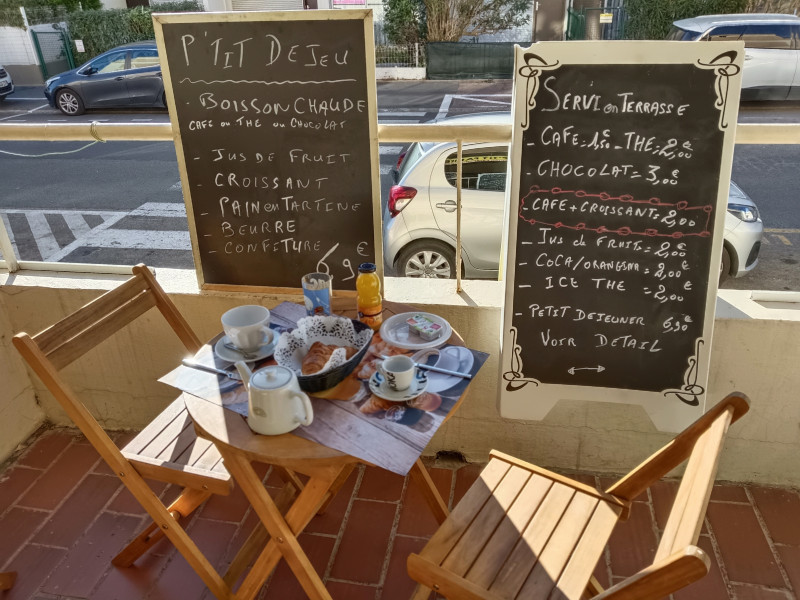 P'TIT DEJEU
- BOISSON CHAUDE
CAFE ou THE ou CHOCOLAT
- JUS DE FRUIT
- CROISSANT
- PAIN en TARTINE
- BEURRE
- CONFITURE
6,9 €
SERVI en TERRASSE
- CAFE = 1,50 - THE = 2,00 €
- CHOCOLAT = 3,00 €
- CAFE + CROISSANT = 2,00 €
- JUS de FRUITS = 2,00 €
- COCA/ORANGINA = 2,00 €
- ICE THE = 2,00 €
- PETIT DEJEUNER 6,90 €
VOIR DETAIL